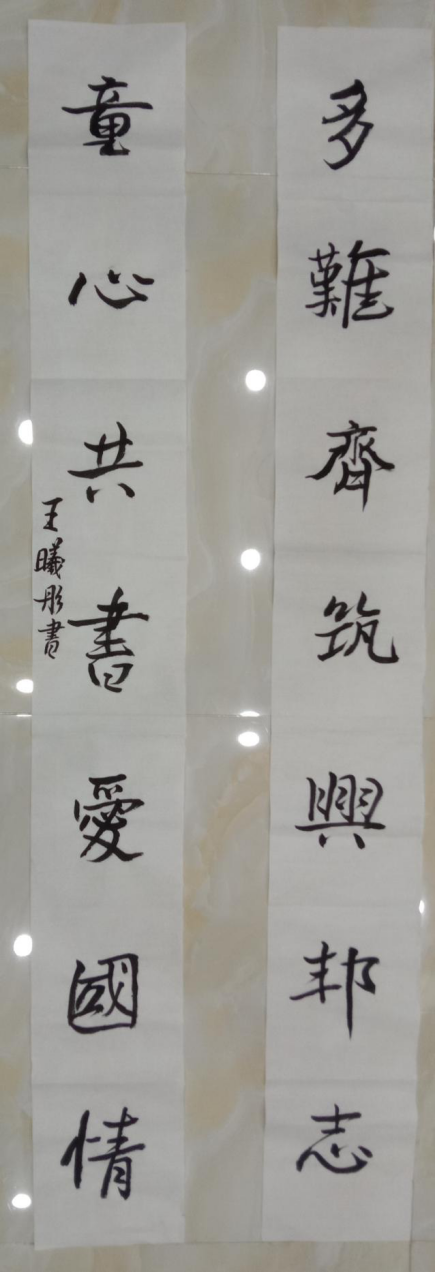 多難齊筑興邦志
童心共書愛國情
王曦彤書